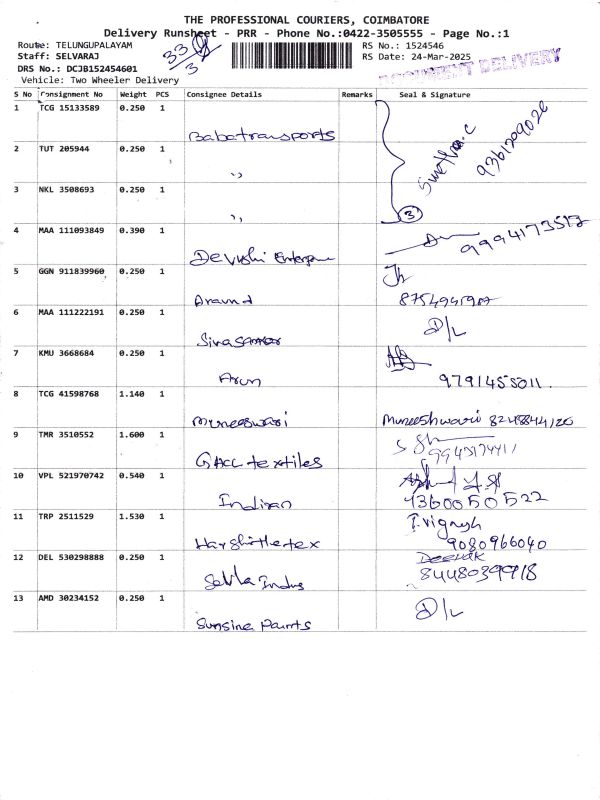 THE PROFESSIONAL COURIERS, COIMBATORE
Delivery Runsheet - PRR - Phone No.:0422-3505555 - Page No.:1
Route: TELUNGUPALAYAM
RS No.: 1524546
Staff: SELVARAJ
RS Date: 24-Mar-2025
DRS No.: DCJB152454601
DOCUMENT DELIVERY
Vehicle: Two Wheeler Delivery
S No Consignment No Weight PCS Consignee Details Remarks Seal & Signature
1 TCG 15133589 0.250 1 Babatransports
9361209026
2 TUT 205944 0.250 1 ,,
3 NKL 3508693 0.250 1 ,,
3
4 MAA 111093849 0.390 1 Devushi Enterprise 9994173517
5 GGN 911839960 0.250 1 Aravind
6 MAA 111222191 0.250 1 Sivasankar D/L
7 KMU 3668684 0.250 1 Arun 9791455011.
8 TCG 41598768 1.140 1 muneeswari Muneeshwari 8248844120
9 TMR 3510552 1.600 1 GACC textiles
10 VPL 521970742 0.540 1 Indiran 9360050522
11 TRP 2511529 1.530 1 Harshittetex T.vignesh
9080966040
12 DEL 530298888 0.250 1 Selva Indus Deepak
8448039918
13 AMD 30234152 0.250 1 Sunsine Paints D/L